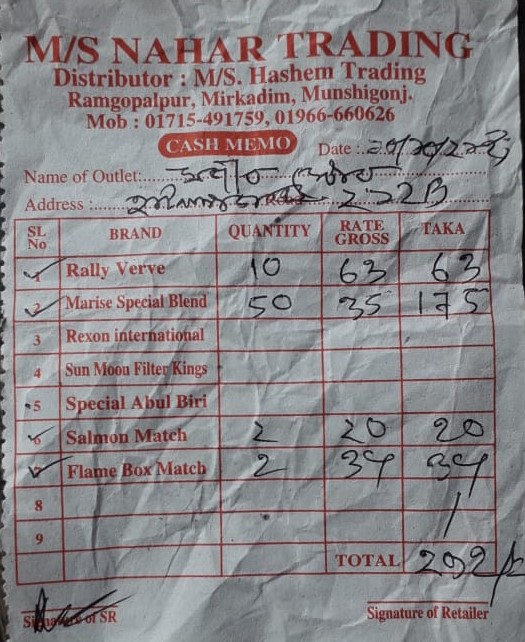 M/S NAHAR TRADING
Distributor : M/S. Hashem Trading
Ramgopalpur, Mirkadim, Munshigonj.
Mob : 01715-491759, 01966-660626
CASH MEMO Date :
Name of Outlet:
Address :
SL No BRAND QUANTITY RATE GROSS TAKA
1 Rally Verve 10 63 63
2 Marise Special Blend 50 35 175
3 Rexon international
4 Sun Moon Filter Kings
5 Special Abul Biri
6 Salmon Match 2 20 20
7 Flame Box Match 2 34 34
8
9
TOTAL 292/
Signature of SR Signature of Retailer